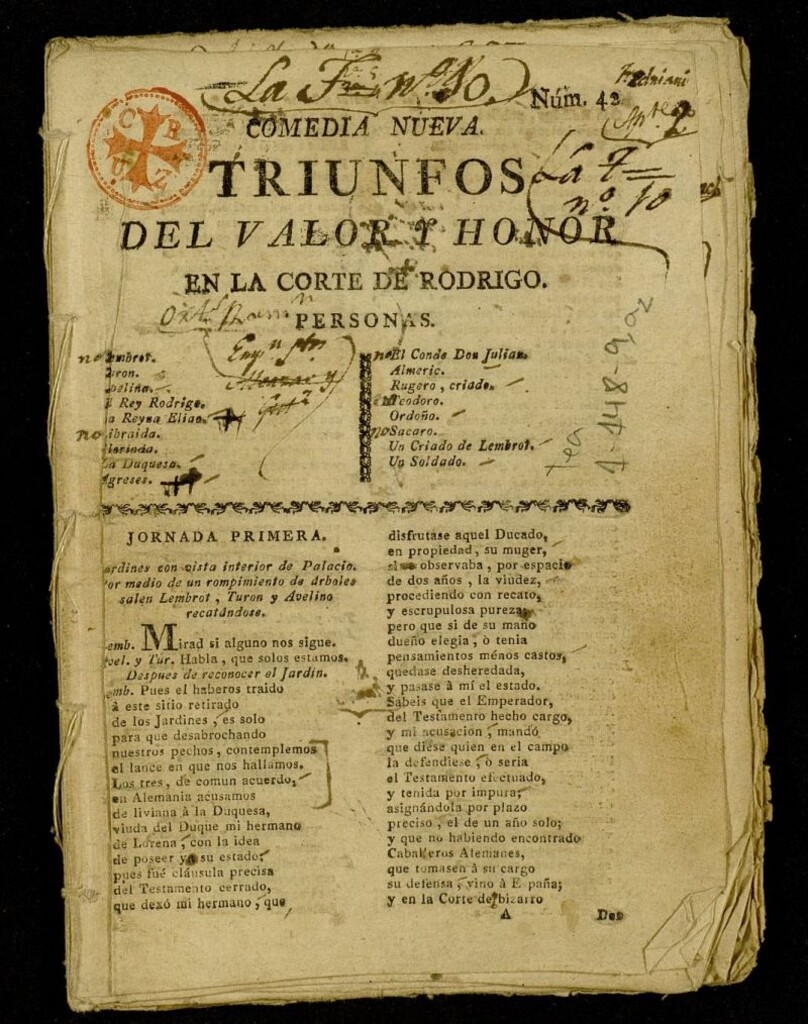 La F nº 10.
Núm. 42
COMEDIA NUEVA.
TRIUNFOS
La F
nº 10
DEL VALOR Y HONOR
EN LA CORTE DE RODRIGO.
PERSONAS.
C R
U Z
embrot.
uron.
velino.
l Rey Rodrigo.
a Reyna Eliao.
ibraida.
lorinda.
a Duquesa.
greses.
El Conde Don Julian.
Almeric.
Rugero, criado.
Teodoro.
Ordoño.
Sacaro.
Un Criado de Lembrot.
Un Soldado.
1-148-9, a2
Tea
JORNADA PRIMERA.
ardines con vista interior de Palacio.
or medio de un rompimiento de árboles
salen Lembrot, Turon y Avelino
recatándose.
emb. Mirad si alguno nos sigue.
vel. y Tur. Habla, que solos estamos.
Despues de reconocer el Jardin.
emb. Pues el haberos traido
á este sitio retirado
de los Jardines, es solo
para que desabrochando
nuestros pechos, contemplemos
el lance en que nos hallamos.
Los tres, de comun acuerdo,
en Alemania acusamos
de liviana à la Duquesa,
viuda del Duque mi hermano
de Lorena, con la idea
de poseer yo su estado;
pues fué cláusula precisa
del Testamento cerrado,
que dexó mi hermano, que,
disfrutase aquel Ducado,
en propiedad, su muger,
si observaba, por espacio
de dos años, la viudez,
procediendo con recato,
y escrupulosa pureza;
pero que si de su mano
dueño elegia, ò tenia
pensamientos ménos castos,
quedase desheredada,
y pasase á mí el estado.
Sabeis que el Emperador,
del Testamento hecho cargo,
y mi acusación, mandó
que diese quien en el campo
la defendiese, ò seria
el Testamento efectuado,
y tenida por impura;
asignándola por plazo
preciso, el de un año solo;
y que no habiendo encontrado
Caballeros Alemanes,
que tomasen à su cargo
su defensa, vino à E paña;
y en la Corte de bizarro
A
Don